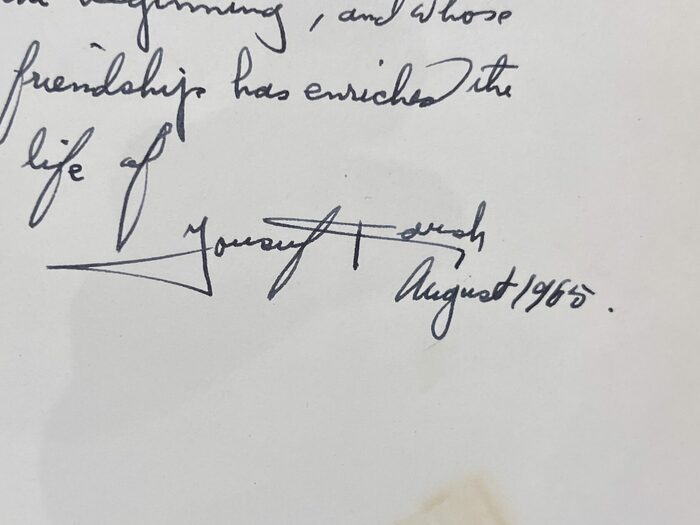 beginning, and whose
friendship has enriched the
life of
Yousuf Karsh
August 1965.